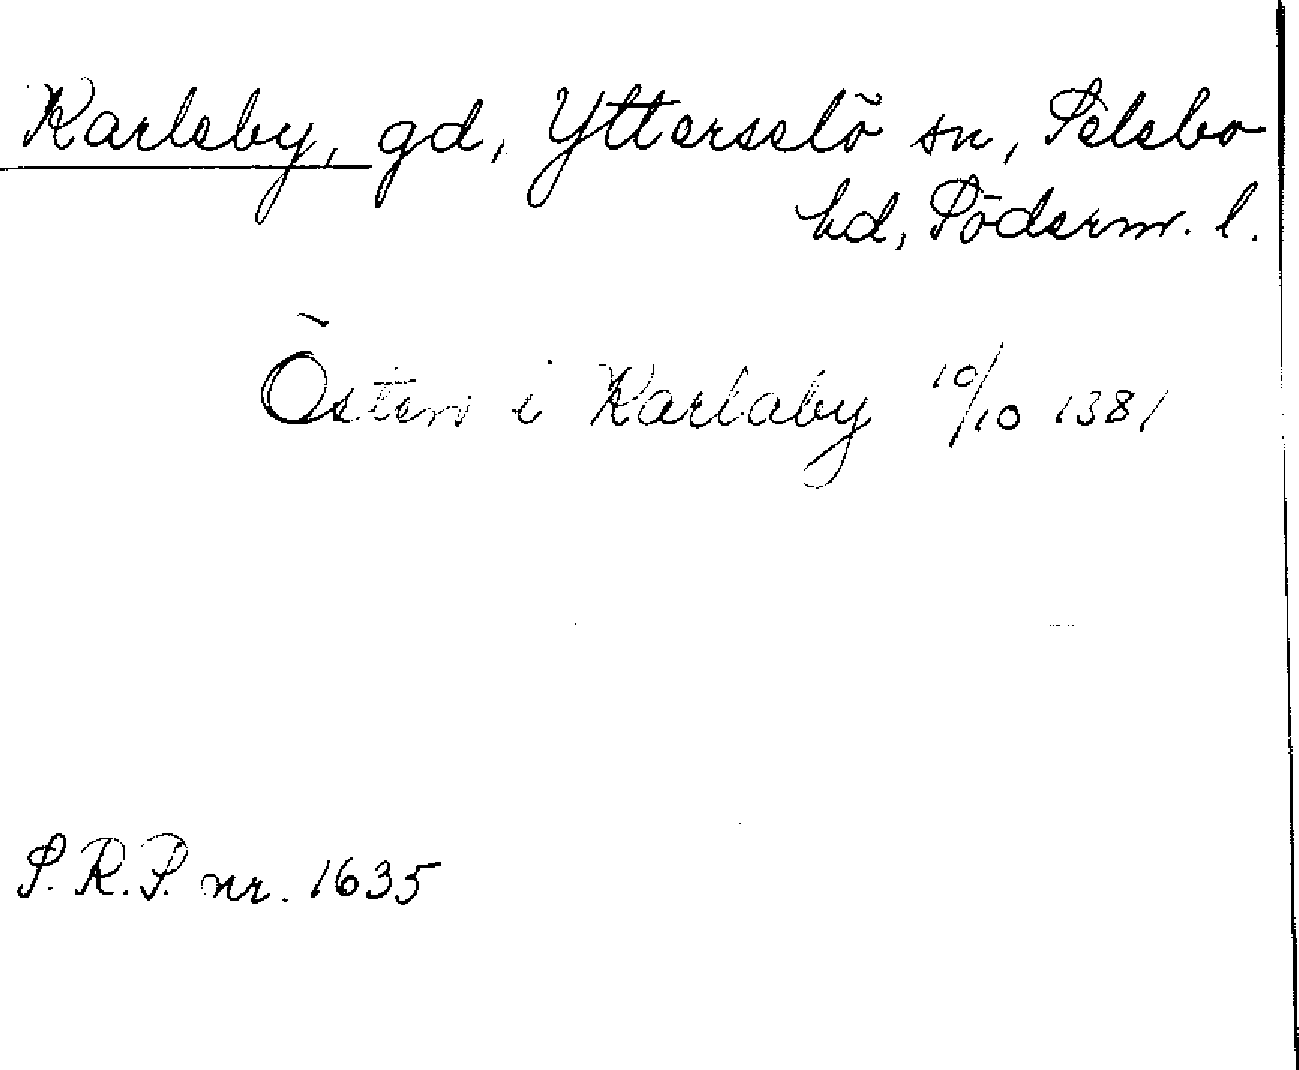 Karlsby, gd, Ytterselö sn, Selebo
hd, Söderm. l.
Östen i Karlaby 10/10 1381
S.R.P. nr. 1635